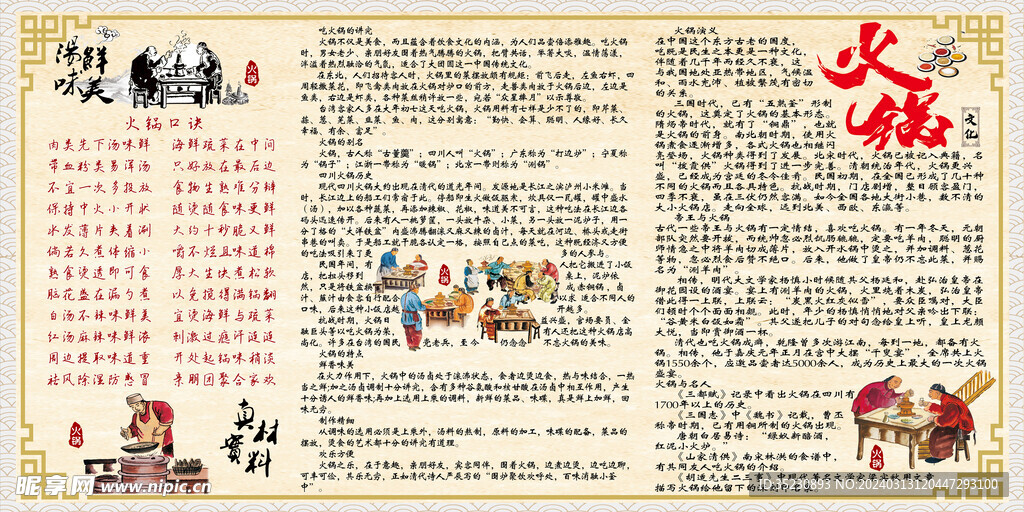 湯鮮
味美
火锅
火锅口诀
肉类先下汤味鲜 海鲜蔬菜在中间
带血粉类易浑汤 只好放在最后边
不宜一次多投放 食物生熟难分辨
保持中火小开状 随烫随食味更鲜
水发薄片夹着涮 大约十秒脆又鲜
倘若久煮体缩小 嚼不烂且味道棉
熟食烫透即可食 厚大生块煮松软
脑花盛在漏勺煮 以免搅得满锅翻
白汤不辣味鲜美 宜烫海鲜与蔬菜
红汤麻辣味鲜浓 刺激过瘾汗涟涟
周边提取味道重 开处起锅味稍淡
祛风除湿防感冒 亲朋团聚合家欢
火锅
真材
實料
吃火锅的讲究
火锅不仅是美食，而且蕴含着饮食文化的内涵，为人们品尝倍添雅趣。吃火锅
时，男女老少、亲朋好友围着热气腾腾的火锅，把臂共话，举箸大啖，温情荡漾，
洋溢着热烈融洽的气氛，适合了大团圆这一中国传统文化。
在东北，人们招待客人时，火锅里的菜摆放颇有规矩：前飞后走，左鱼右虾，四
周轻撒菜花，即飞禽类肉放在火锅对炉口的前方，走兽类肉放于火锅后边，左边是
鱼类，右边是虾类，各种菜丝稍许放一些，宛若“众星捧月”以示尊敬。
台湾客家人多在大年初七这天吃火锅，火锅用料有七样是少不了的，即芹菜、
蒜、葱、芫菜、韭菜、鱼、肉，这分别寓意：“勤快、会算、聪明、人缘好、长久
幸福、有余、富足”。
火锅的别名
火锅，古人称“古董羹”；四川人叫“火锅”；广东称为“打边炉”；宁夏称
为“锅子”；江浙一带称为“暖锅”；北京一带则称为“涮锅”；
四川火锅历史
现代四川火锅大约出现在清代的道光年间。发源地是长江之滨泸州小米滩。当
时，长江边上的船工们常宿于此。停船即生火做饭驱寒，炊具仅一瓦罐，罐中盛水
（汤），加以各种蔬菜，再添加辣椒、花椒，味道美不可言，这种吃法在长江边各
码头迅速传开。后来有人一挑箩筐，一头放牛杂、小菜，另一头放一泥炉子，用一
分了格的“大洋铁盆”内盛沸腾翻滚又麻又辣的卤汁，每天就在河边、桥头或走街
串巷的叫卖。于是船工就干脆各认定一格，按照自己点的菜吃，这种既经济又方便
的吃法吸引来了更 多的人参与。
民国年间，有 人把它搬进了小饭
店，把担头移到 桌上，泥炉依
然，只是将铁盆换 成赤铜锅，卤
汁、蘸汁由食客自行配合 以求 适合不同人的
口味，后来这种小饭店越 开越多。
抗战时期，火锅日 益兴盛，当娇要员、金
融巨头等以吃火锅为荣， 有人还把这种火锅店高
尚化。许多在台湾的国民 党老兵，至 今 仍念念 不忘火锅的美味。
火锅
火锅的特点
鲜香味美
在火力作用下，火锅中的汤卤处于滚沸状态，食者边烫边食，热与味结合，一热
当之鲜；加之汤卤调制十分讲究，含有多种谷氨酸和核甘酸在汤卤中相互作用，产生
十分诱人的鲜香味；再加上选用上乘的调料，新鲜的菜品、味碟，真是鲜上加鲜，回
味无穷。
制作精细
从调味的选用必须是上乘外，汤料的熬制，原料的加工，味碟的配备，菜品的
摆放，烫食的艺术都十分的讲究有道理。
欢乐方便
火锅之乐，在于意趣，亲朋好友，宾客同伴，围着火锅，边煮边烫，边吃边聊，
可丰可俭，其乐无穷，正如清代诗人严辰写的“围炉聚饮欢呼处，百味消融小釜
中”。
火锅演义
在中国这个东方古老的国度，
吃既是民生之本更是一种文化，
伴随着几千年而经久不衰，这
与我国地处亚热带地区，气候温
和、雨水充沛、植被繁茂有密切
的关系。
三国时代，已有“五熟釜”形制
的火锅，这奠定了火锅的基本形态。
隋炀帝时代，就有了“铜鼎”，也就
是火锅的前身。南北朝时期，使用火
锅煮食逐渐增多，各式火锅也相继闪
亮登场，火锅种类得到了发展。北宋时代，火锅已被记入典籍，名
叫“拔霞供”火锅得到了进一步完善。清朝统治年代，火锅更兴
盛，已经成为宫廷的冬令佳肴。民国初期，在全国已形成了几十种
不同的火锅而且各具特色。抗战时期，门店剧增，整日顾客盈门，
四季不衰，虽在三伏仍然忽满。如今全国各地大街小巷，数不清的
大小火锅店。走向全球，远到北美、西欧、东瀛等。
帝王与火锅
古代一些帝王与火锅有一定情结，喜欢吃火锅。有一年冬天，元朝
部队突然要开拔，而统帅忽必烈饥肠辘辘，定要吃羊肉，聪明的厨
师情急之中将羊肉切成薄片，放入开水锅中烫之，并加调料、葱花
等物，忽必烈食后赞不绝口。后来，他做了皇帝仍不忘此菜，并赐
名为“涮羊肉”。
相传，明代大文学家杨慎小时候随其父杨廷和，赴弘治皇帝在
御花园设的酒宴。宴上有涮羊肉的火锅，火里烧着木炭，弘治皇帝
借此得一上联，上联云：“炭黑火红灰似雪”，要众臣属对，大臣
们顿时个个面面相觑。此时，年少的杨慎悄悄地对父亲吟出下联：
“谷黄米白饭如霜”。其父遂把儿子的对句念给皇上听，皇上龙颜
大悦，当即赏御酒一杯。
清代也吃火锅成癖，乾隆曾多次游江南，每到一地，都备有火
锅。相传，他于嘉庆元年正月在宫中大摆“千叟宴”，全席共上火
锅1550余个，应邀品尝者达5000余人，成为历史上最大的一次火锅
盛宴。
火锅与名人
《三都赋》记录中看出火锅在四川有
1700年以上的历史。
《三国志》中《魏书》记载，曹丕
称帝时期，已有用铜所制的火锅出现。
唐朝白居易诗：“绿蚁新醅酒，
红泥小火炉。”
《山家清供》南宋林洪的食谱中，
有其同友人吃火锅的介绍。
火锅
文化
火锅
昵享网 www.nipic.cn
ID:35230893 NO:20240313120447293100